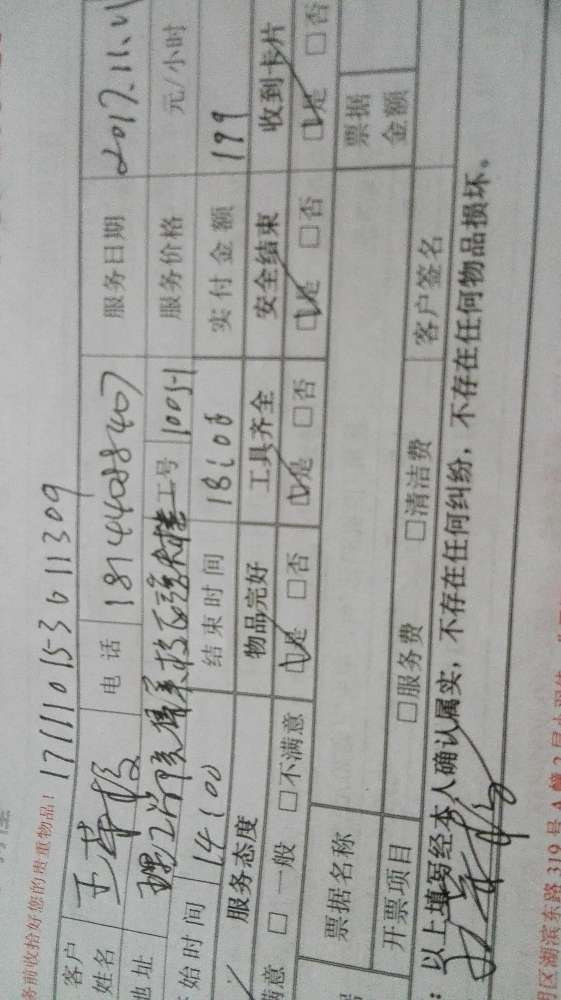 务前收拾好您的贵重物品! 17111015361 1309
客户姓名 电话 18144088407 服务日期 2017.11.11
地址 工号 1005-1 服务价格 元/小时
始时间 14:00 结束时间 18:08 实付金额 199
服务态度 物品完好 工具齐全 安全结束 收到卡片
满意 □ 一般 □不满意 □是 □否 □是 □否 □是 □否 □是 □否
票据名称 票据金额
开票项目 □服务费 □清洁费 客户签名
: 以上填写经本人确认属实,不存在任何纠纷,不存在任何物品损坏。
区湖滨东路 319 号 A 幢 2